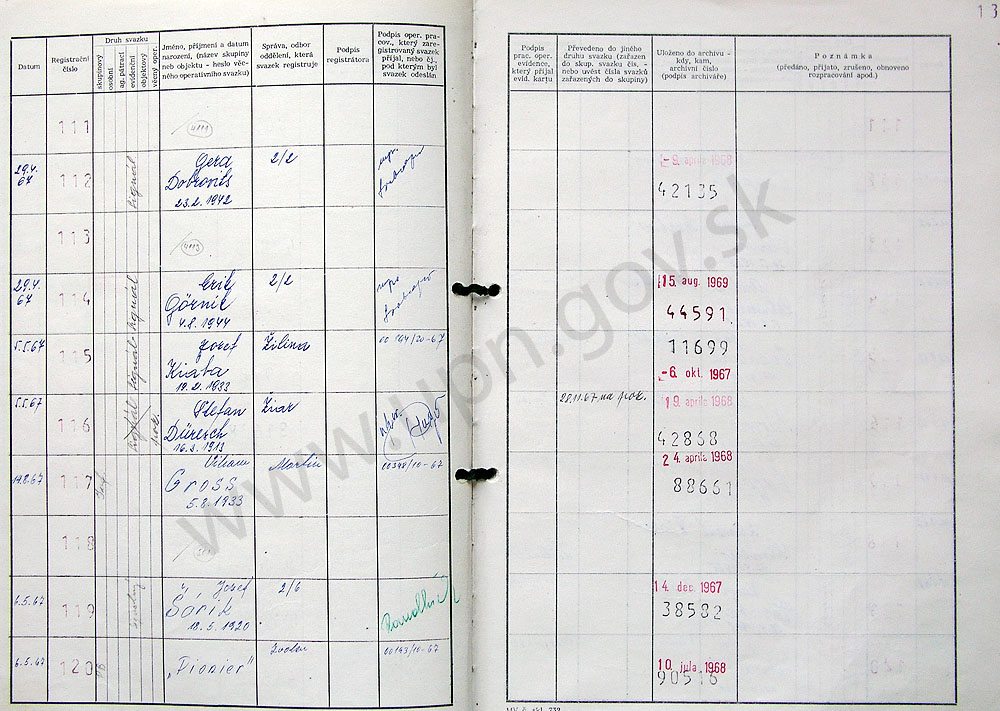 13
Datum
Registrační číslo
Druh svazku
skupinový
osobní
ap. pátrací
evidenční
objektový
věcný oper.
Jméno, příjmení a datum
narození, (název skupiny
neb objektu - heslo věc-
ného operativního svazku)
Správa, odbor
oddělení, která
svazek registruje
Podpis
registrátora
Podpis oper. pra-
cov., který zare-
gistrovaný svazek
přijal, nebo čj.,
pod kterým byl
svazek odeslán
Podpis
prac. oper.
evidence,
který přijal
evid. kartu
Převedeno do jiného
druhu svazku (zařazen
do skup. svazku čís. -
nebo uvést čísla svazků
zařazených do skupiny)
Uloženo do archivu -
kdy, kam,
archivní číslo
(podpis archiváře)
Poznámka
(předáno, přijato, zrušeno, obnoveno
rozpracování apod.)
111
29.4.
67
112
signál
Gera
Dobrovits
23.2.1942
2/2
-9. apríla 1968
42135
113
29.4.
67
114
signál
Erik
Görnic
4.8.1944
2/2
15. aug. 1969
44591
5.5.67
115
signál
Jozef
19.2.1933
Žilina
00164/20-67
11699
-6. okt. 1967
5.5.67
116
Štefan
16.3.1913
Žiar
19. apríla 1968
42868
117
Viliam
Gross
5.8.1933
Martin
24. apríla 1968
88661
118
6.5.67
119
Jozef
Šorik
18.5.1920
2/6
14. dec. 1967
38582
6.5.67
120
„Pionier"
Zvolen
00193/10-67
10. júla 1968
90516
www.upn.gov.sk